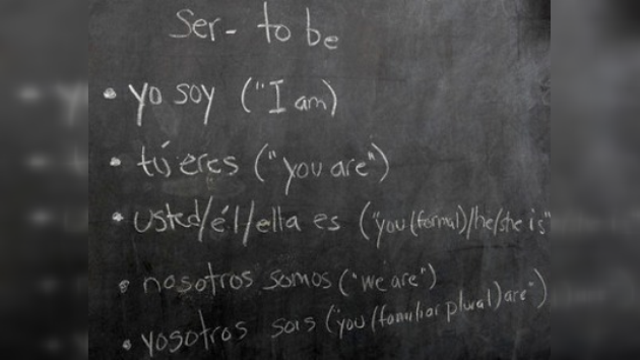 Ser - to be
• yo soy ("I am)
• tú eres ("you are")
• usted/él/ella es ("you (formal)/he/she is"
• nosotros somos ("we are")
• yosotros sois ("you (familiar plural) are")